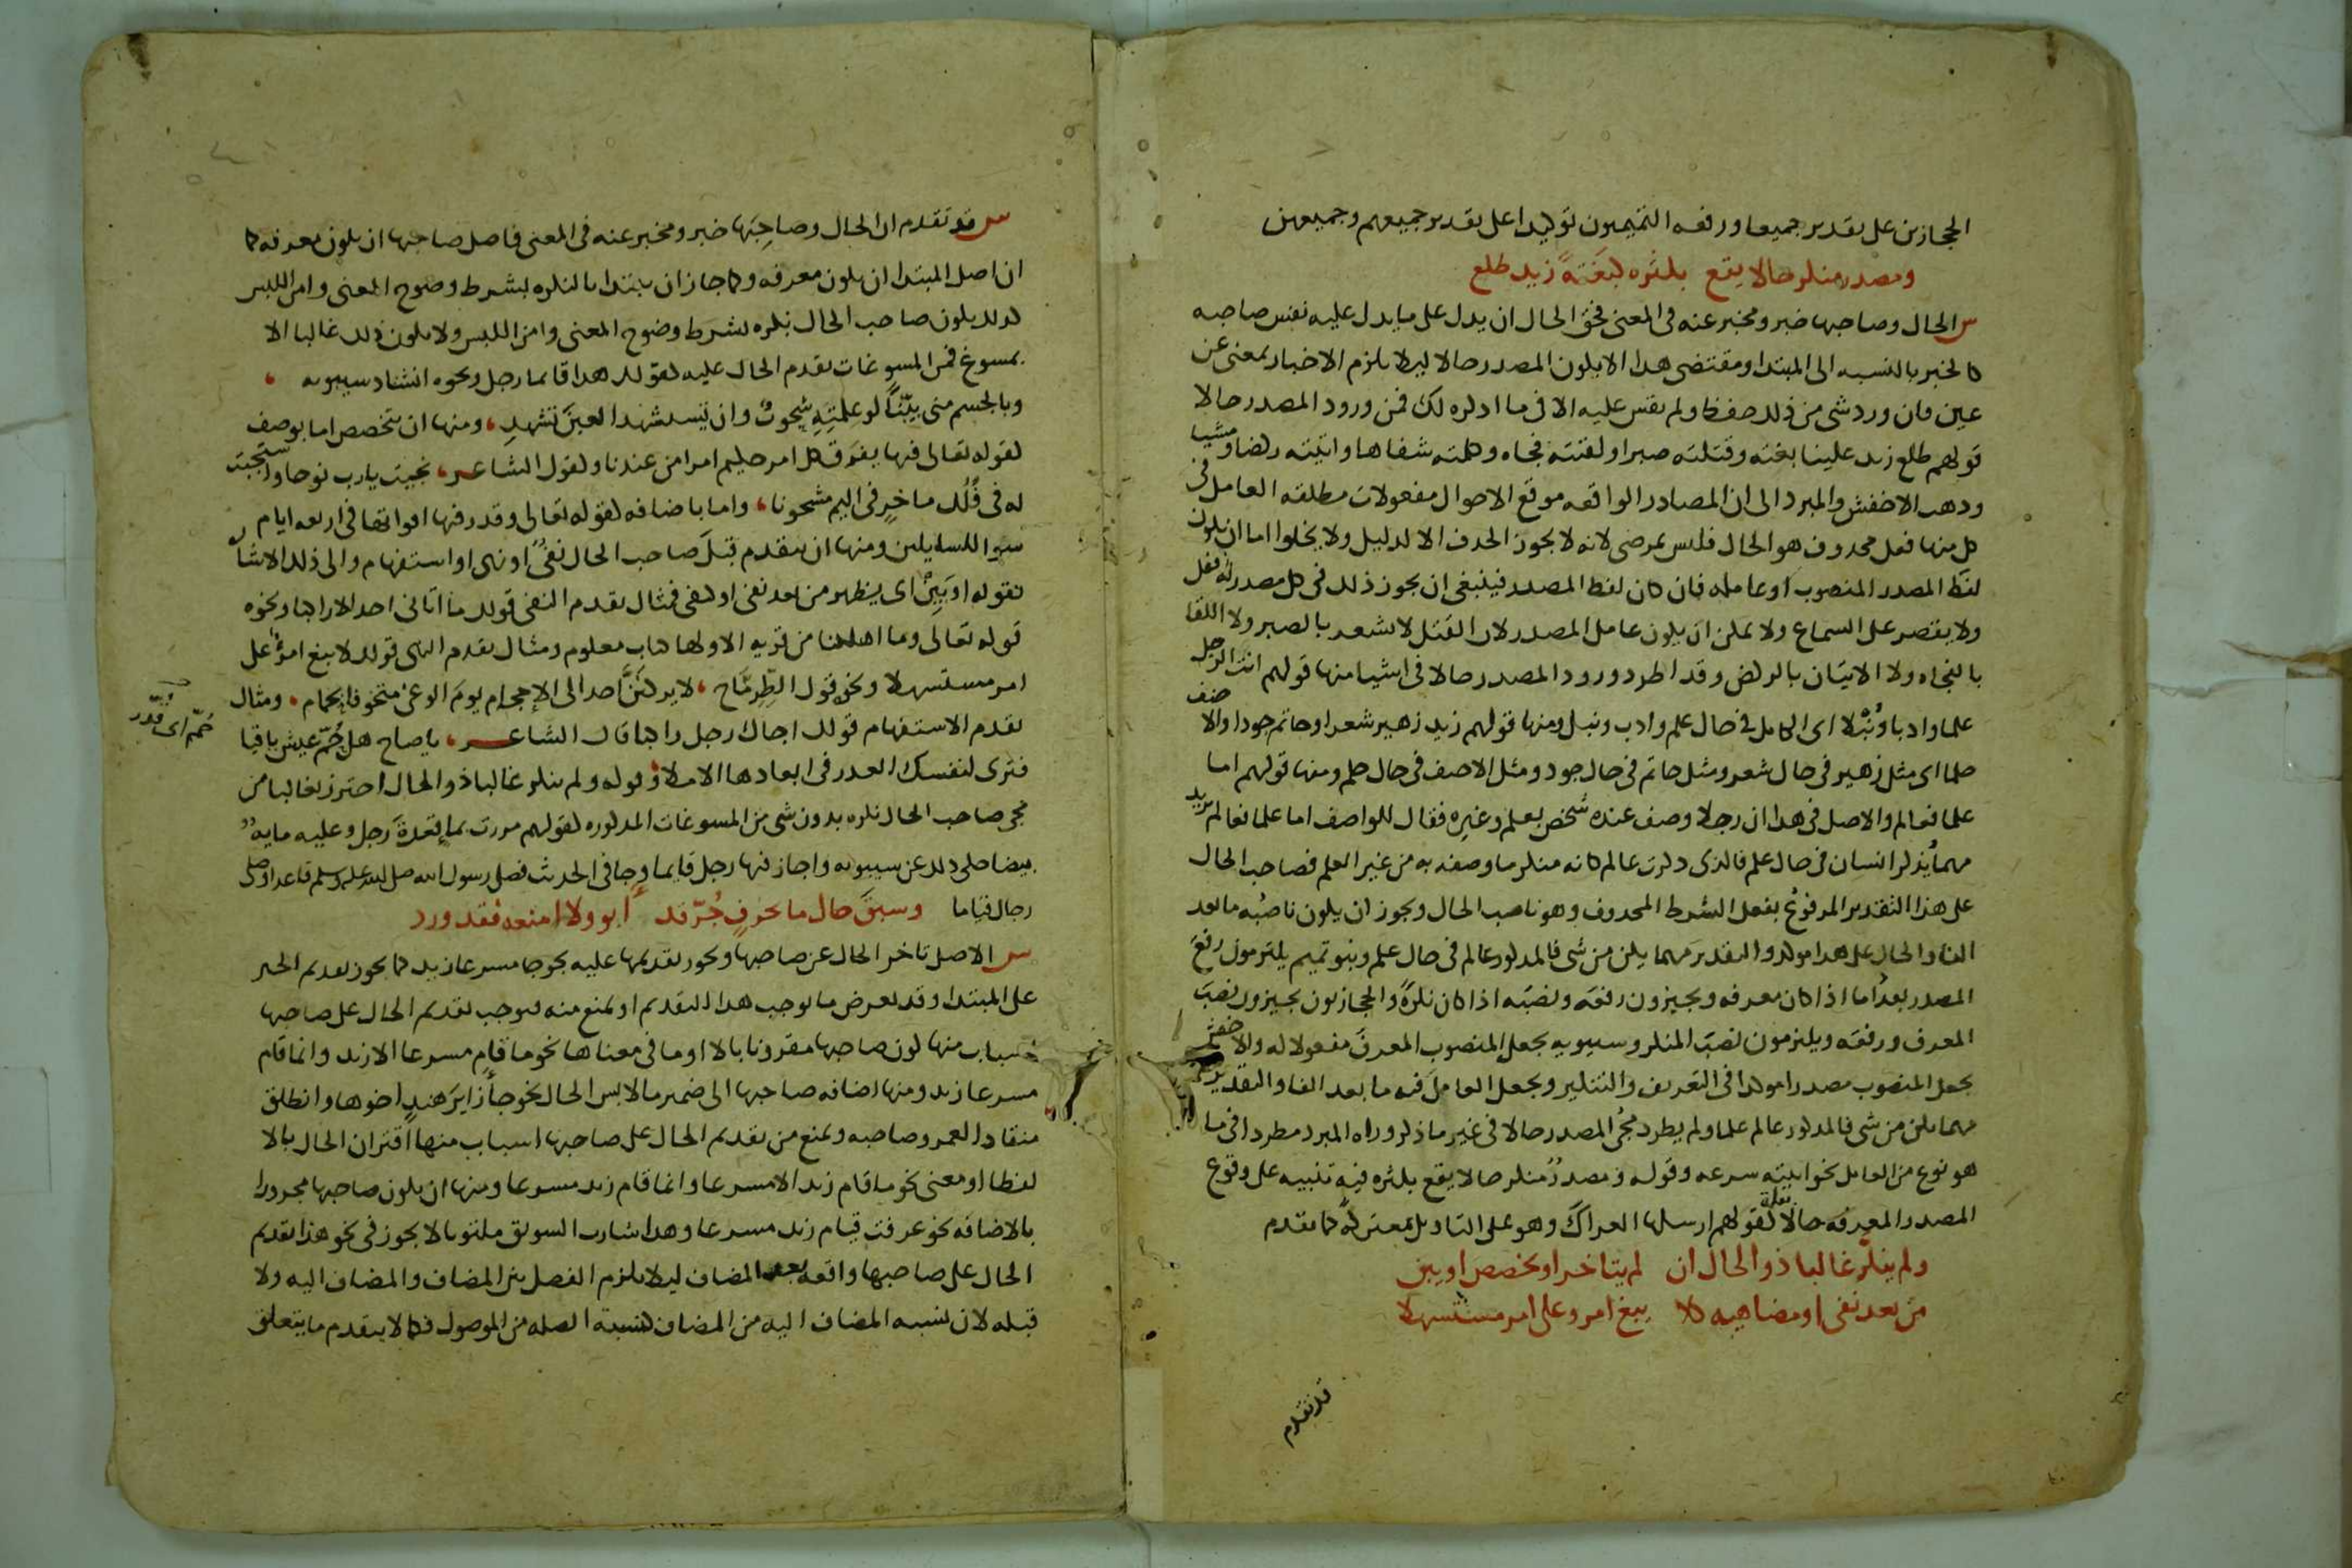 الحجازين على تقدير جميعا ورفعه التميميون توكيدا على تقدير جميعهم وجميعهن
ومصدر منكر حالا يقع بكثره كبغتةً زيد طلع
س الحال وصاحبها خبر ومخبر عنه فى المعنى فحق الحال ان يدل على ما يدل عليه نفس صاحبه
كالخبر بالنسبه الى المبتدا ومقتضى هذا الا يكون المصدر حالا ليلا يلزم الاخبار بمعنى عن
عين فان ورد شى من ذلك حفظ ولم يقس عليه الا فى ما اذكره لك فمن ورود المصدر حالا
قولهم طلع زيد علينا بغته وقتلته صبرا ولقيته فجاه وكلمته شفاها واتيته ركضا ومشيا
وذهب الاخفش والمبرد الى ان المصادر الواقعه موقع الاحوال مفعولات مطلقه العامل فى
كل منها فعل محذوف هو الحال فليس بمرضى لانه لا يجوز الحذف الا لدليل ولا يخلوا اما ان يكون
لفظ المصدر المنصوب او عامله فان كان لفظ المصدر فينبغى ان يجوز ذلك فى كل مصدر له فعل
ولا يقتصر على السماع ولا يمكن ان يكون عامل المصدر لان القتل لا يشعر بالصبر ولا اللقا
بالفجاه ولا الاتيان بالركض وقد اطرد ورود المصدر حالا فى اشيا منها قولهم انت الرجل
علما وادبا ونُبْلا اى الكامل فى حال علم وادب ونبل ومنها قولهم زيد زهير شعرا وحاتم جودا والاحنف
حلما اى مثل زهير فى حال شعر ومثل حاتم فى حال جود ومثل الاحنف فى حال حلم ومنها قولهم اما
علما فعالم والاصل فى هذا ان رجلا وصف عنده شخص بعلم وغيره فقال للواصف اما علما فعالم يريد
مهما يُذكر انسان فى حال علم فالذى ذكرت عالم كانه منكر ما وصفه به من غير العلم فصاحب الحال
على هذا التقدير المرفوعُ بفعل الشرط المحذوف وهو ناصب الحال ويجوز ان يكون ناصبُه ما بعد
الفا والحال على هذا موكده والتقدير مهما يكن من شى فالمذكور عالم فى حال علم وبنو تميم يلتزمون رفعَ
المصدر بعد اما اذا كان معرفه ويجيزون رفعَه ونصبَه اذا كان نكرةً والحجازيون يجيزون نصبَ
المعرف ورفعَه ويلتزمون نصبَ المنكر وسيبويه يجعل المنصوب المعرفَ مفعولا له والاخفش
يجعل المنصوب مصدرا موكدا فى التعريف والتنكير ويجعل العاملَ فيه ما بعد الفا والتقدير
مهما يكن من شى فالمذكور عالم علما ولم يطرد مجُى المصدر حالا فى غير ما ذكر وراه المبرد مطردا فى ما
هو نوع من العامل نحو اتيته سرعه وقوله ومصدرٌ منكر حالا يقع بكثره فيه تنبيه على وقوع
المصدر المعرفه حالا بقلة كقولهم ارسلها العراكَ وهو على التاويل بمعتركةً كما تقدم
ولم ينكر غالبا ذو الحال ان لم يتاخر او يخصص او يبن
من بعد نفى او مضاهيه كلا يبغ امرو على امر مستسهلا
قد تقدم
س قد تقدم ان الحال وصاحبَها خبر ومخبر عنه فى المعنى فاصل صاحبها ان يكون معرفه كما
ان اصل المبتدا ان يكون معرفه وكما جاز ان يبتدا بالنكره بشرط وضوح المعنى وامن اللبس
كذلك يكون صاحب الحال نكره بشرط وضوح المعنى وامن اللبس ولا يكون ذلك غالبا الا
بمسوغ فمن المسوغات تقدم الحال عليه كقولك هذا قائما رجل ونحوه انشاد سيبويه
وبالجسم منى بيّنًا لو علمتِهِ شحوبٌ وان تستشهد العينَ تشهدِ ومنها ان يتخصص اما بوصف
كقوله تعالى فيها يفرق كل امر حكيم امرا من عندنا وكقول الشاعر نجيت يارب نوحا واستجبت
له فى فُلُك ماخرٍ فى اليم مشحونا واما باضافه كقوله تعالى وقدر فيها اقواتها فى اربعه ايام
سواء للسايلين ومنها ان يتقدم قبلَ صاحب الحال نفىٌ او نهى او استفهام والى ذلك الاشاره
بقوله او يَبِنْ اى يظهر من بعد نفى او كنفى فمثال تقدم النفى قولك ما اتانى احد الا راكبا ونحوه
قوله تعالى وما اهلكنا من قريه الا ولها كتاب معلوم ومثال تقدم النهى قولك لا يبغ امرؤ على
امر مستسهلا ونحو قول الطِّرِمَّاح لا يركنَنَّ احد الى الاحجام يومَ الوغى متخوفا لحمام ومثال
تقدم الاستفهام قولك اجاك رجل راكبا قال الشاعر يا صاح هل حُمّ عيش باقيا
فترى لنفسك العذر فى ابعادها الاملا وقوله ولم ينكر غالبا ذو الحال احترز بغالبا من
مجى صاحب الحال نكره بدون شى من المسوغات المذكوره كقولهم مررت بماء قعدةَ رجل وعليه مايةٌ
بيضا حكى ذلك عن سيبويه واجاز فيها رجل قايما وجا فى الحديث فصلى رسول الله صلى الله عليه وسلم قاعدا وصلى
رجال قياما وسبقَ حال ما بحرفٍ جُرّ قد أبو ولا امنعه فقد ورد
س الاصل تاخر الحال عن صاحبها ويجوز تقديمها عليه نحو جا مسرعا زيد كما يجوز تقديم الخبر
على المبتدا وقد يعرض ما يوجب هذا التقديم او يمنع منه فيوجب تقديم الحال على صاحبها
اسباب منها كون صاحبها مقرونا بالا او ما فى معناها نحو ما قام مسرعا الا زيد وانما قام
مسرعا زيد ومنها اضافه صاحبها الى ضمير ما لابس الحال نحو جا زايرَ هندٍ اخوها وانطلق
منقادا لعمرو صاحبه ويمنع من تقديم الحال على صاحبها اسباب منها اقتران الحال بالا
لفظا او معنى نحو ما قام زيد الا مسرعا وانما قام زيد مسرعا ومنها ان يكون صاحبها مجرورا
بالاضافه نحو عرفت قيام زيد مسرعا وهذا شارب السويق ملتوتا لا يجوز فى نحو هذا تقديم
الحال على صاحبها واقعه بعد المضاف ليلا يلزم الفصل بين المضاف والمضاف اليه ولا
قبله لان نسبه المضاف اليه من المضاف كنسبة الصله من الموصول فكما لا يتقدم ما يتعلق
حُمّ اى قُدّر